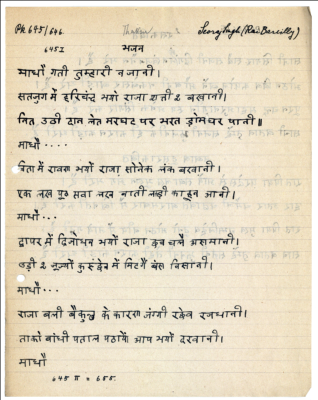 PK 645/646.
Thakur
Seoraj Singh (Rai Bareilly)
645 I
भजन
माधौ गती तुम्हारी न जानी।
सतजुग में हरिचन्द्र भयो राजा रानी 2 बखानी।
नित उठी दान लेत मरघट पर भरत डोमघर पानी॥
माधौ....
त्रेता में रावण भयो राजा सोनेक लंक बखानी।
एक लख पूत सवा लख नाती
माधौ...
द्वापर में द्रिजोधन भयो राजा छत्र चलै असमानी।
उड़ी 2 जूझ्यो कुरुक्षेत्र में मिटगै बंस निसानी।
माधौ...
राजा बली बैकुन्ठ के कारण जंगी रचेव रजधानी।
ताको बांधी पताल पठायो आप भयो दरबानी।
माधौ
645 II = 655.